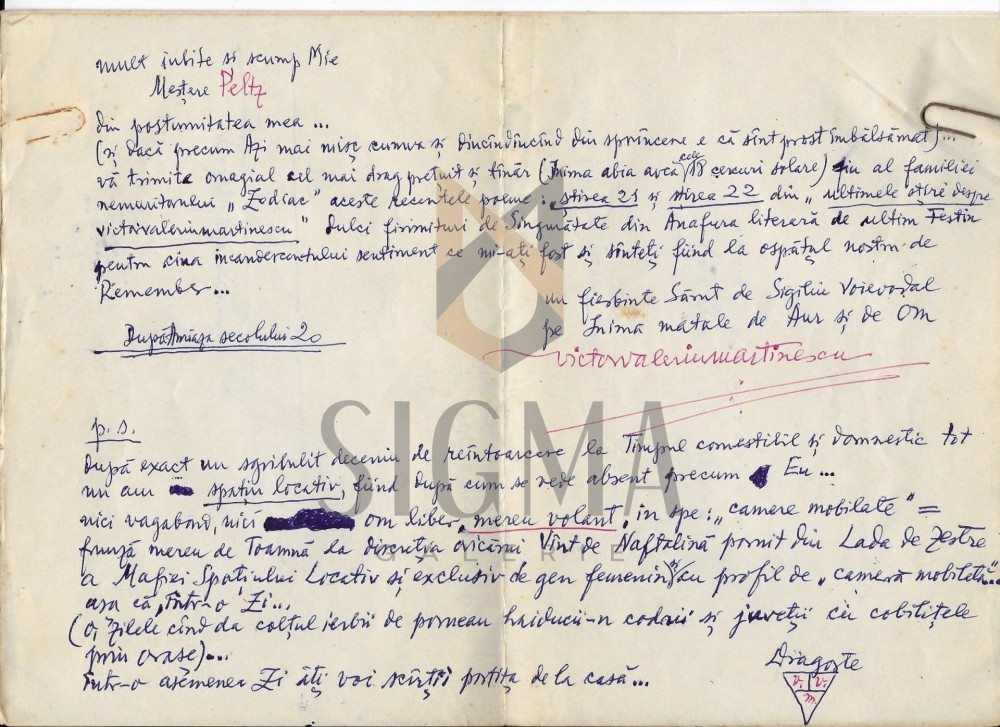 mult iubite si scump Mie
Meștere Peltz
din postumitatea mea...
(și dacă precum Azi mai mișc cumva și din cînd în cînd din sprîncene e că sînt prost îmbălsămat)...
vă trimite omagial cel mai drag prețuit și tînăr (Inima abia avea cele 18 cercuri solare) fiu al familiei
nemuritorului „Zodiac" aceste recentele poeme: „știrea 21 și știrea 22 din „ultimele știri despre
victorvaleriumartinescu" Dulci firmituri de Singurătate din Anafura literară de ultim Festin
pentru cina incandescentului sentiment ce mi-ați fost și sînteți fiind la ospățul nostru de
Remember...
un fierbinte Sărut de Sigiliu Voievodal
pe Inima matale de Aur și de Om
După Amiaza secolului 20
victorvaleriumartinescu
SIGMA
GALERIE
p.s.
După exact un sgribulit deceniu de reîntoarcere la Timpul comestibil și domnestic tot
nu am spațiu locativ, fiind după cum se vede absent precum Eu...
nici vagabond, nici om liber, mereu volant, in spe: „camere mobilate" =
frunză mereu de Toamnă la discreția oricărui Vînt de Naftalină pornit din Lada de Zestre
a Mafiei Spațiului Locativ și exclusiv de gen femenin cu profil de „cameră mobilată"...
așa că, într-o Zi...
(o, zilele cînd da colțul ierbii de porneau haiducii-n codrii și juveții cu cobilițele
prin orașe)...
într-o asemenea Zi îți voi scîrții portița de la casă...
Dragoste
v. v.
m.